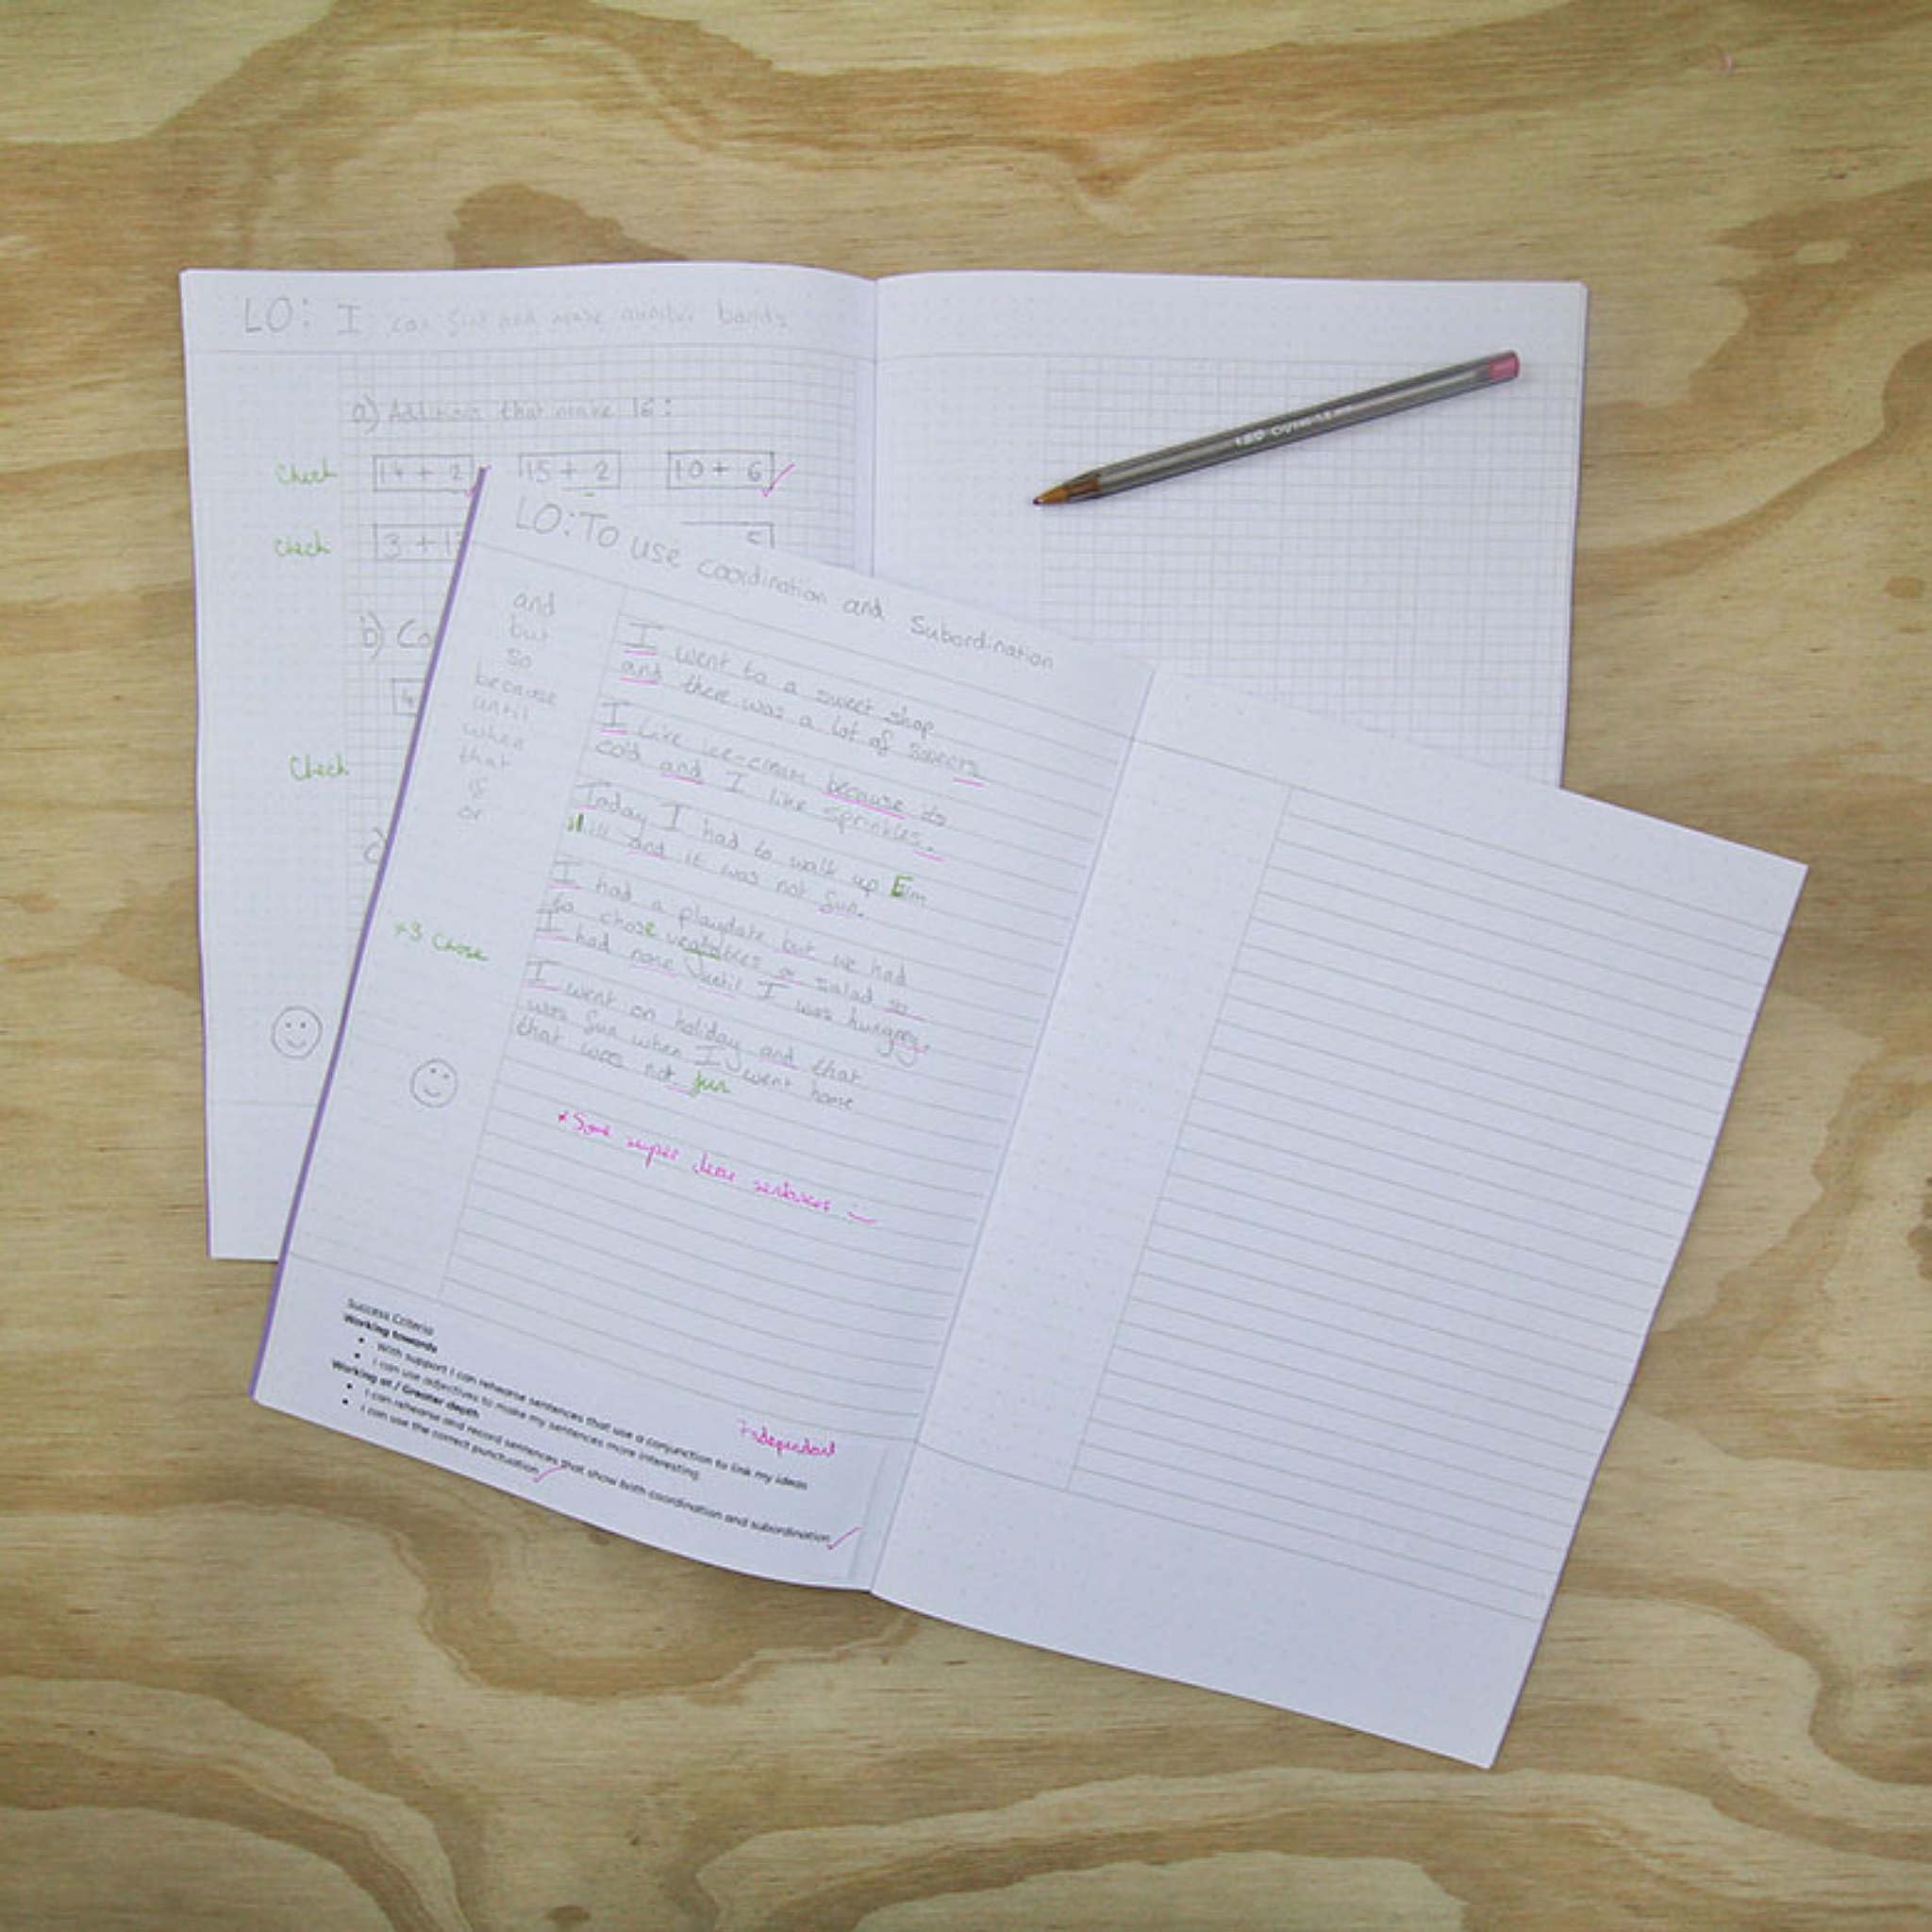 LO: I can find and make number bonds
a) Additions that make 16:
Check 14 + 2 15 + 2 10 + 6
check 3 + 13
b) Co
Check
LO: To use coordination and Subordination
and
but
so
because
until
when
that
if
or
I went to a sweet shop
and there was a lot of sweets
I like ice-cream because its
cold and I like sprinkles.
Today I had to walk up Elm
Hill and it was not fun.
I had a playdate but we had
to chose vegatables or salad so
I had none until I was hungrey.
I went on holiday and that
was fun when I went home
that was not fun
*3 Chose
*Some super clear sentences
Success Criteria
Working towards
• With support I can rehearse sentences that use a conjunction to link my ideas
• I can use adjectives to make my sentences more interesting.
Working at / Greater depth
• I can rehearse and record sentences that show both coordination and subordination
• I can use the correct punctuation
Independent